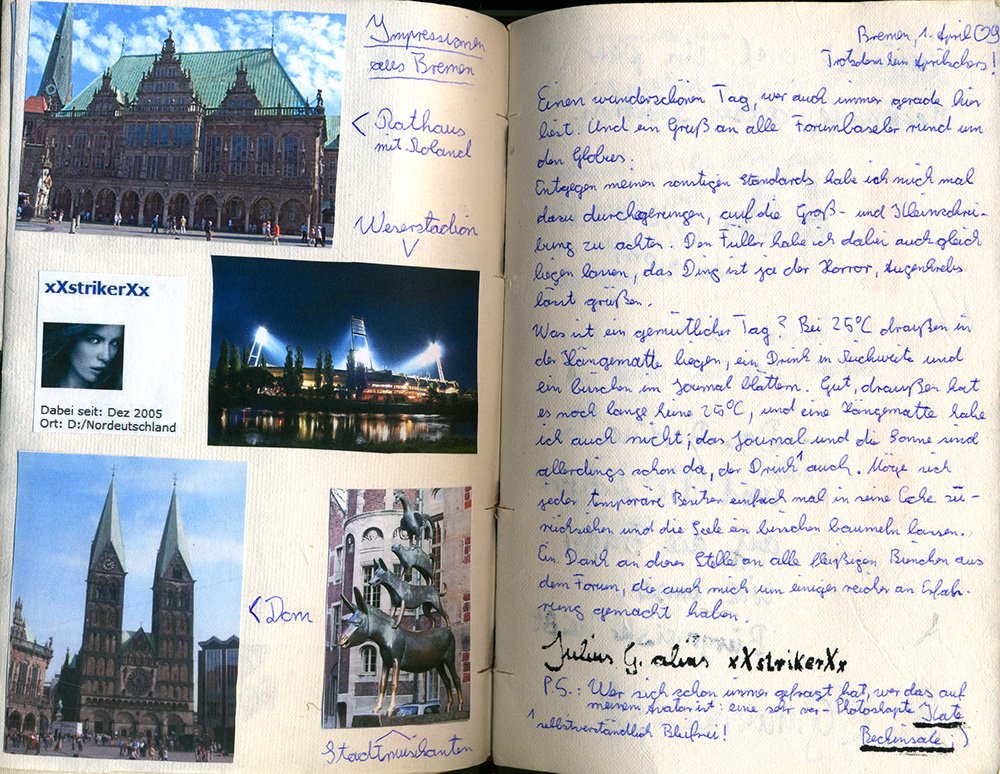 Impressionen
aus Bremen
< Rathaus
mit Roland
Weserstadion
xXstrikerXx
Dabei seit: Dez 2005
Ort: D:/Nordeutschland
< Dom
Stadtmusikanten
Bremen, 1. April 09
Trotzdem kein Aprilscherz!
Einen wunderschönen Tag, wer auch immer gerade hier
liest. Und ein Gruß an alle Forumbastler rund um
den Globus.
Entgegen meinen sonstigen Standards habe ich mich mal
dazu durchgerungen, auf die Groß- und Kleinschrei-
bung zu achten. Den Füller habe ich dabei auch gleich
liegen lassen, das Ding ist ja der Horror, Augenkrebs
lässt grüßen.
Was ist ein gemütlicher Tag? Bei 25°C draußen in
der Hängematte liegen, ein Drink in Reichweite und
ein bisschen im Journal blättern. Gut, draußen hat
es noch lange keine 25°C, und eine Hängematte habe
ich auch nicht; das Journal und die Sonne sind
allerdings schon da, der Drink¹ auch. Möge sich
jeder temporäre Besitzer einfach mal in seine Ecke zu-
rückziehen und die Seele ein bisschen baumeln lassen.
Ein Dank an dieser Stelle an alle fleißigen Bienchen aus
dem Forum, die auch mich um einiges reicher an Erfah-
rung gemacht haben.
Julius G. alias xXstrikerXx
P.S.: Wer sich schon immer gefragt hat, wer das auf
meinem Avatar ist: eine sehr ver-Photoshopte Kate
Beckinsale ;)
¹ selbstverständlich Bleifrei!